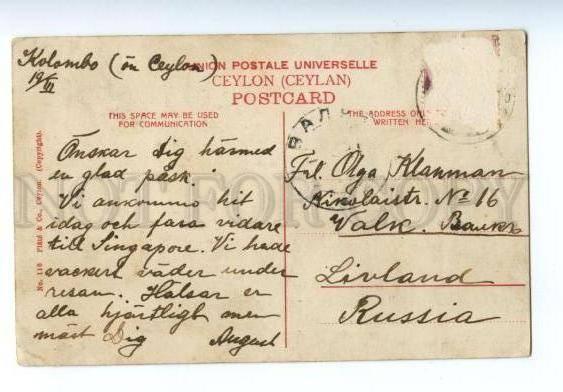 Kolombo (ön Ceylon)
19/VI
UNION POSTALE UNIVERSELLE
CEYLON (CEYLAN)
POSTCARD
THIS SPACE MAY BE USED
FOR COMMUNICATION
THE ADDRESS ONLY
WRITTEN HE
ВАЛ
Önskar Dig härmed
en glad påsk.
Vi ankommo hit
idag och fara vidare
till Singapore. Vi hade
vackert väder under
resan. Hälsar er
alla hjärtligt men
mäst Dig August
Frl. Olga Klanman
Nikolaistr. No 16
Valk. Валкъ
Livland
Russia
No. 118 Plâté & Co., Ceylon (Copyright).
NOT FOR COPY